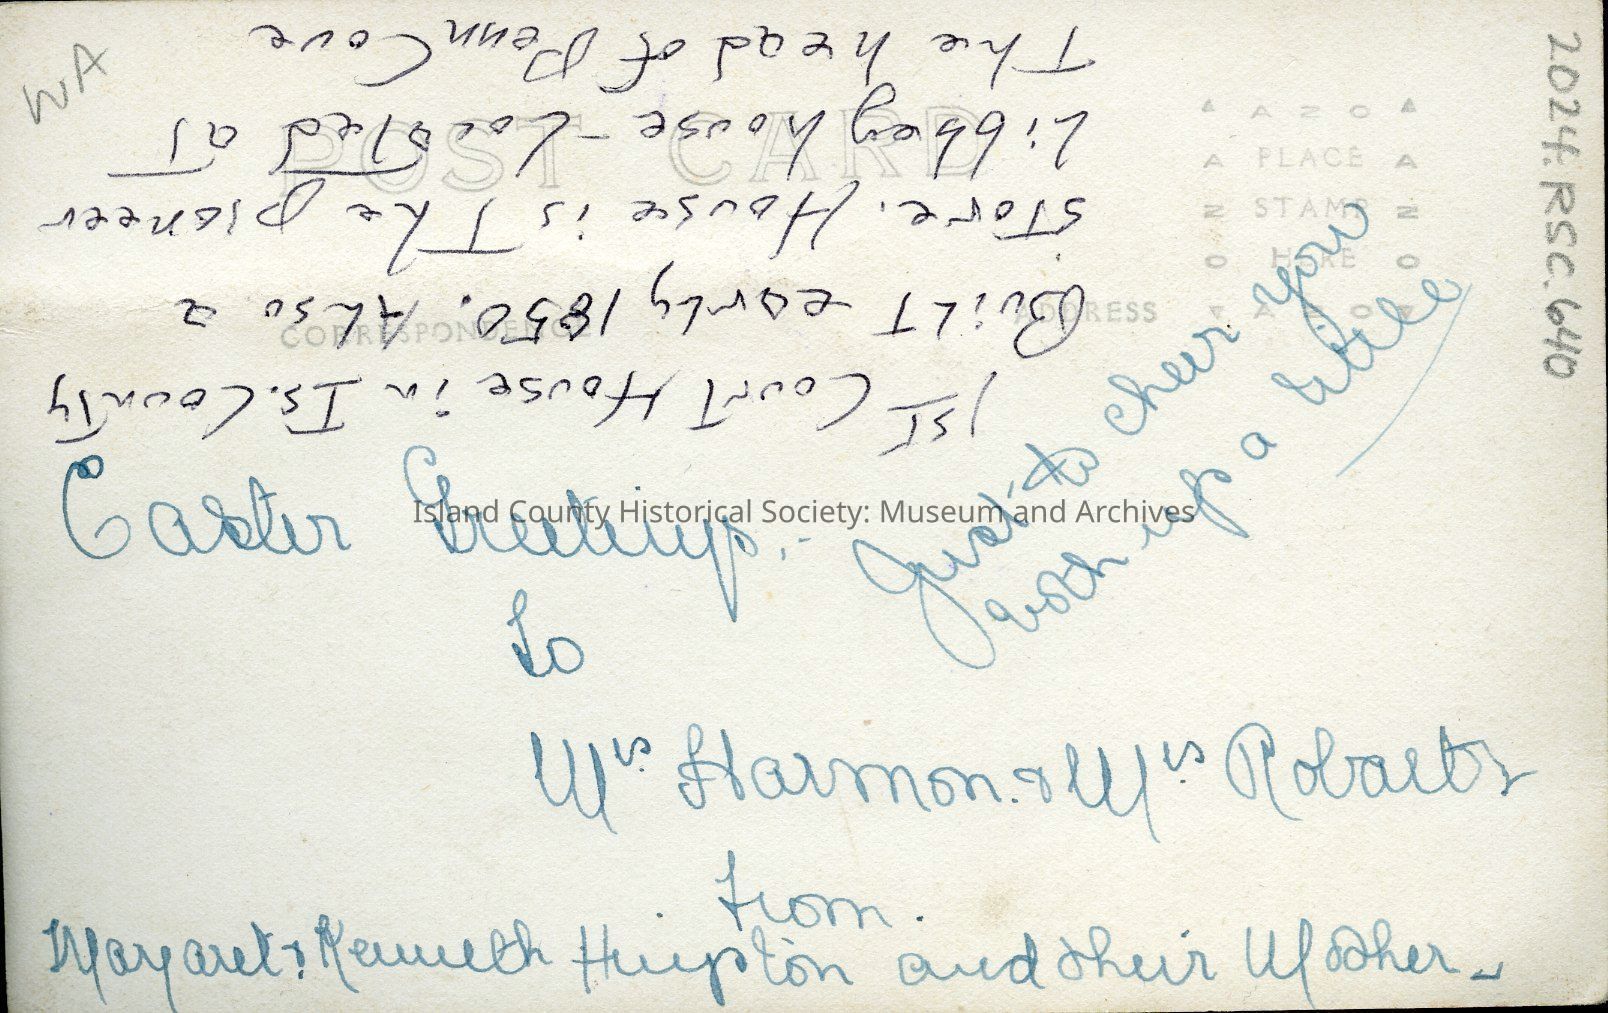 1st Court House in Is. County
Built early 1850. Also a
store. House is The pioneer
Libbey house - Located at
The head of Penn Cove
WA
2024.RSC.640
POST CARD
CORRESPONDENCE
ADDRESS
AZO
PLACE
STAMP
HERE
AZO
Easter Greetings.
Just to cheer you
both up a little
To
Mrs Harmon. & Mrs Robarts
From.
Margaret & Kenneth Hingston and their Mother
Island County Historical Society: Museum and Archives